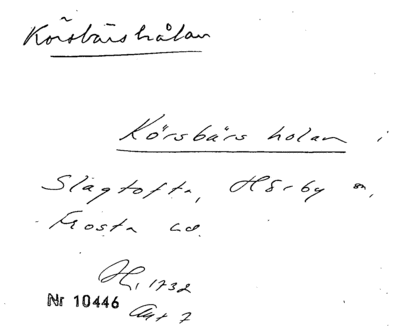 Körsbärshålan
Körsbärs holan i
Slagtofta, Hörby sn,
Frosta hd.
H, 1732
Nr 10446
Akt 7